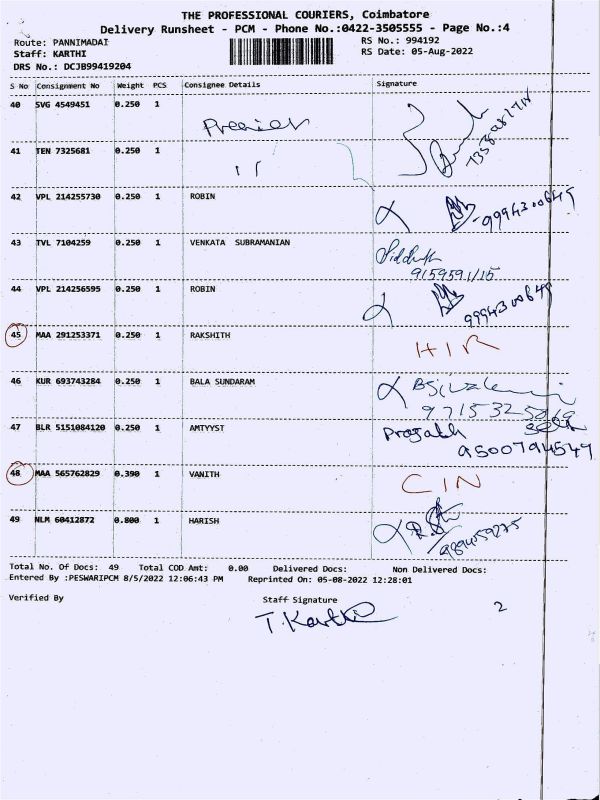 THE PROFESSIONAL COURIERS, Coimbatore
Delivery Runsheet - PCM - Phone No.:0422-3505555 - Page No.:4
Route: PANNIMADAI
RS No.: 994192
Staff: KARTHI
RS Date: 05-Aug-2022
DRS No.: DCJB99419204
S No Consignment No Weight PCS Consignee Details Signature
40 SVG 4549451 0.250 1 Premier
41 TEN 7325681 0.250 1 11
42 VPL 214255730 0.250 1 ROBIN 9994300649
43 TVL 7104259 0.250 1 VENKATA SUBRAMANIAN
44 VPL 214256595 0.250 1 ROBIN 9994300649
45 MAA 291253371 0.250 1 RAKSHITH HIR
46 KUR 693743284 0.250 1 BALA SUNDARAM
47 BLR 5151084120 0.250 1 AMTYYST 9500794549
48 MAA 565762829 0.390 1 VANITH CIN
49 NLM 60412872 0.800 1 HARISH
Total No. Of Docs: 49 Total COD Amt: 0.00 Delivered Docs: Non Delivered Docs:
Entered By :PESWARIPCM 8/5/2022 12:06:43 PM Reprinted On: 05-08-2022 12:28:01
Verified By Staff Signature
T. Karthi
2